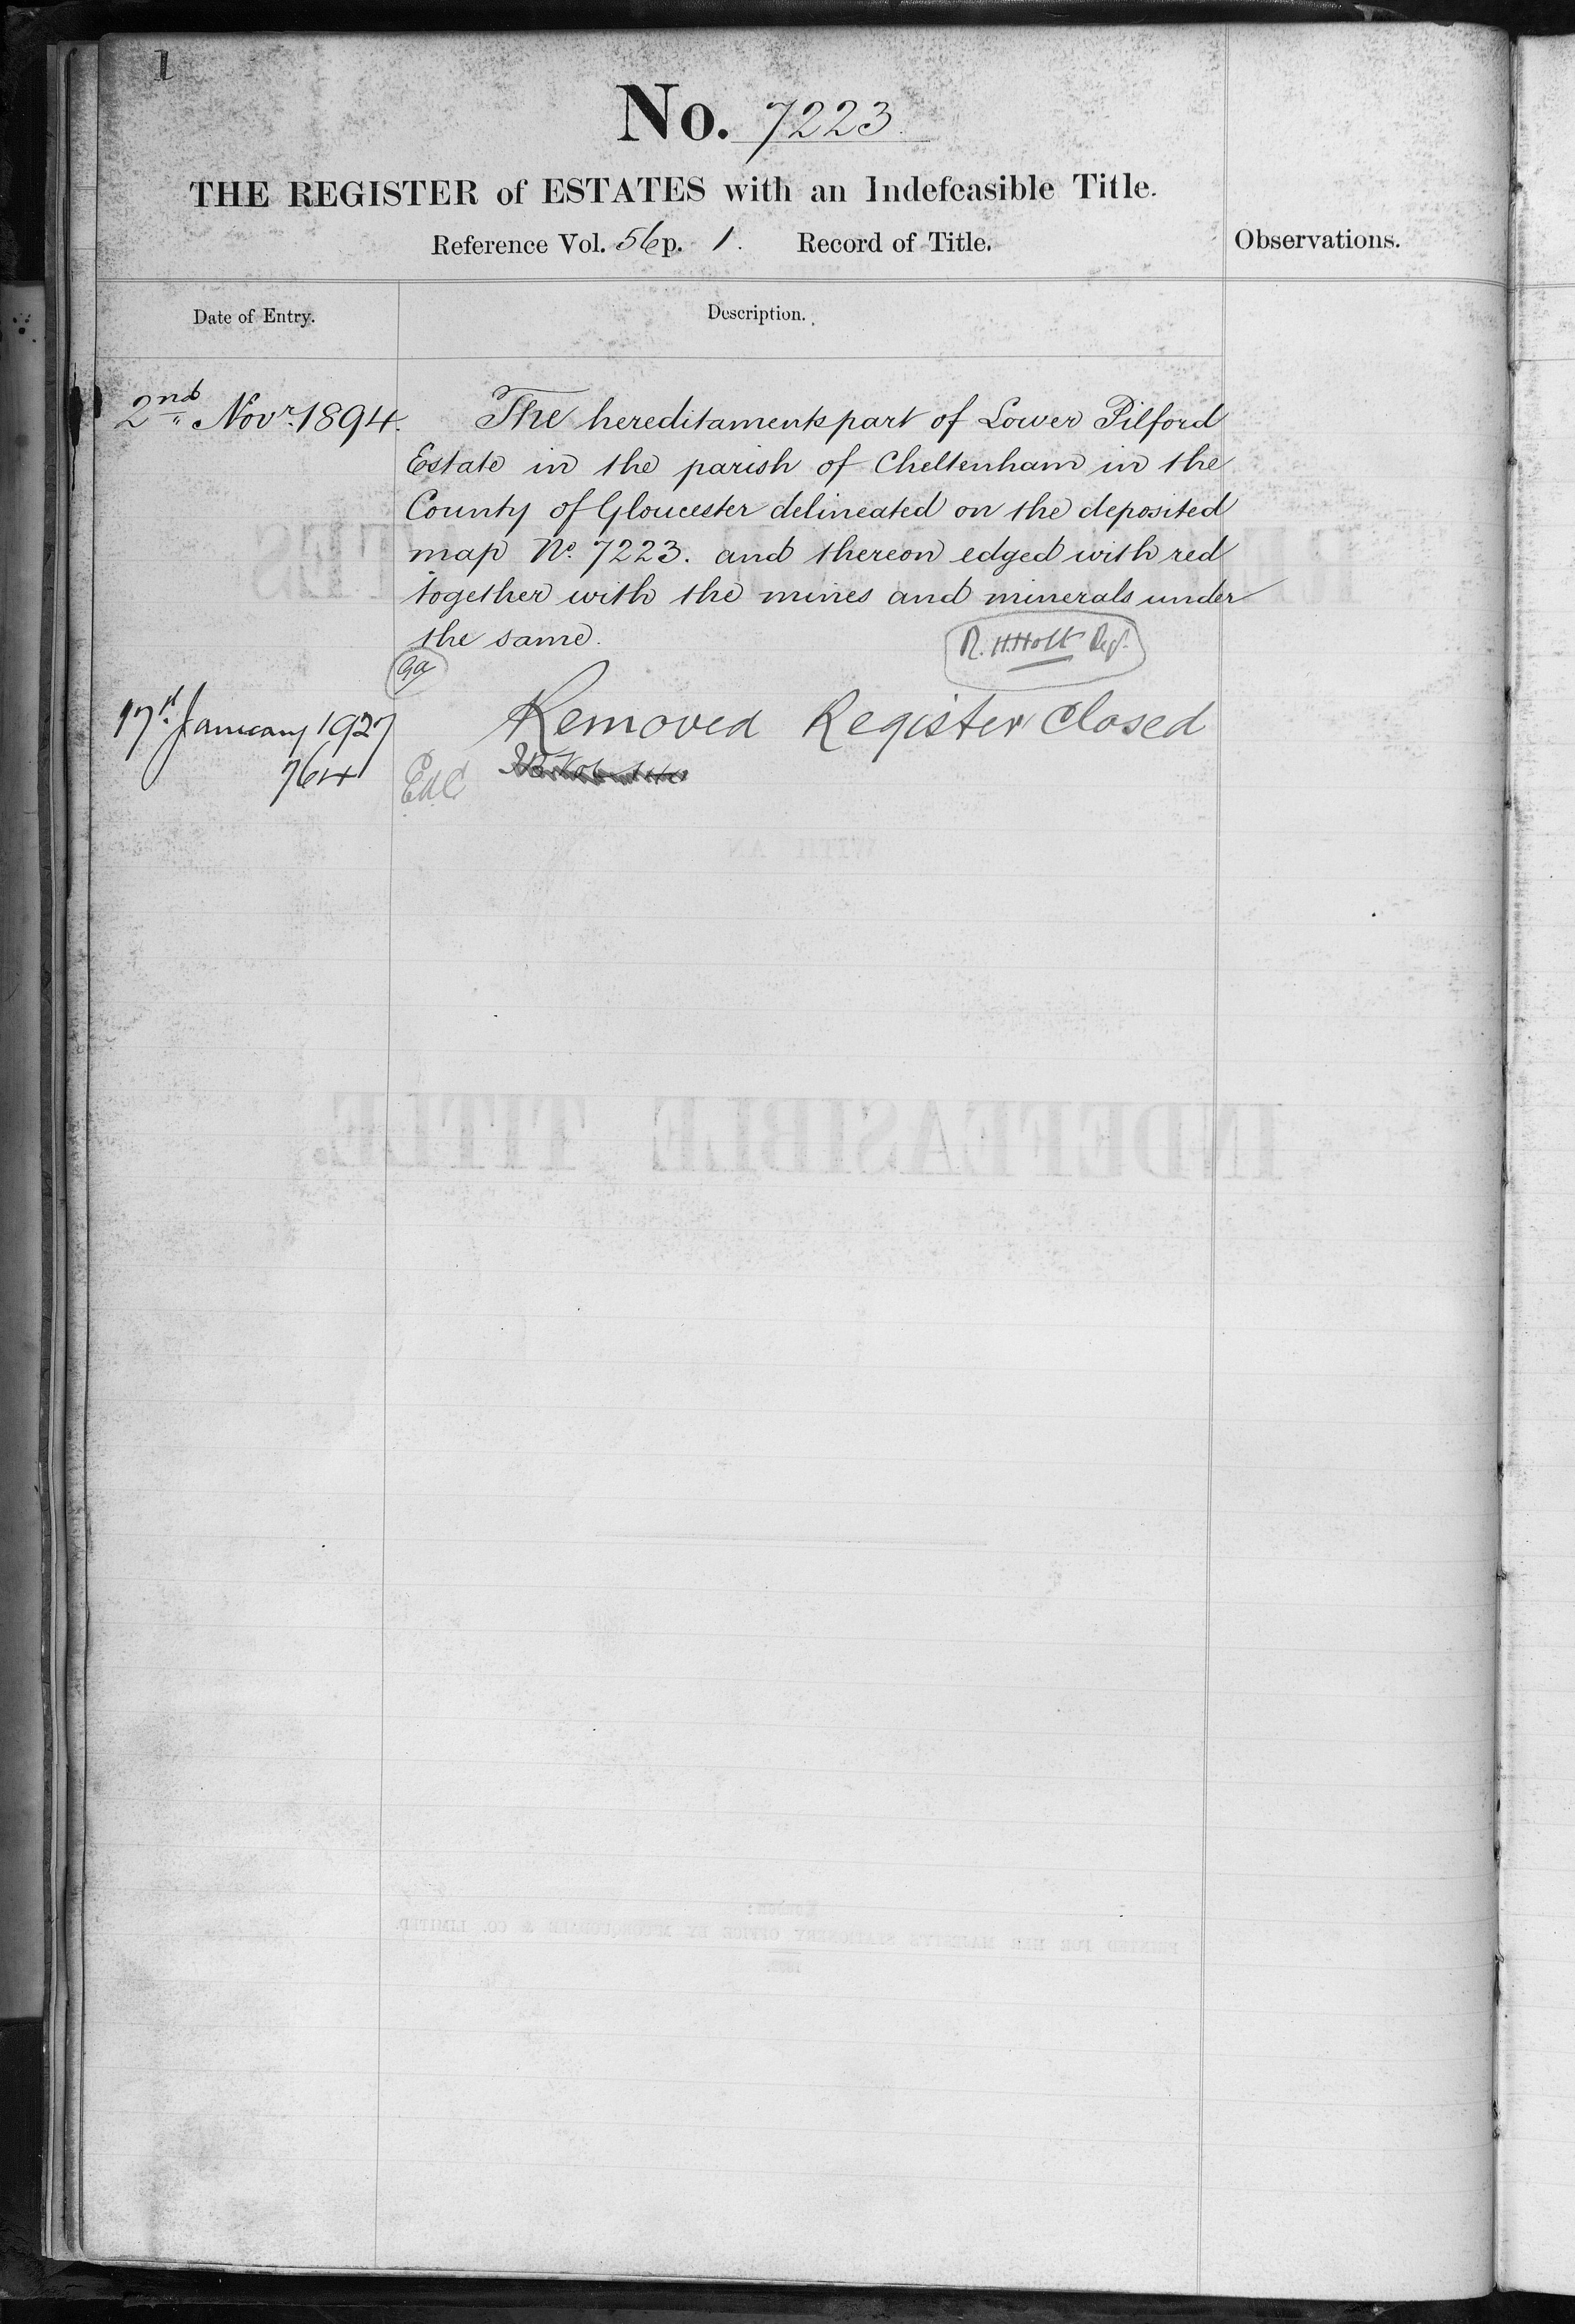 1
No. 7223.
THE REGISTER of ESTATES with an Indefeasible Title.
Reference Vol. 56 p. 1. Record of Title.
Observations.
Date of Entry.
Description.
2nd Novr. 1894.
The hereditaments part of Lower Pilford
Estate in the parish of Cheltenham in the
County of Gloucester delineated on the deposited
map No. 7223. and thereon edged with red
together with the mines and minerals under
the same.
R. H. Holt Regr.
17th January 1927
Removed Register Closed
764
WITH AN
INDEFEASIBLE TITLE.
PRINTED FOR HER MAJESTY'S STATIONERY OFFICE BY McCORQUODALE & CO. LIMITED.